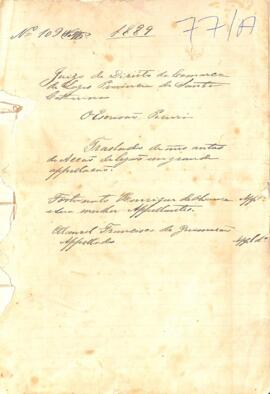 1889
77/A
Juizo de Direito da Comarca
de Lages Provincia de Santa
Catharina
O Escrivão
Traslado de uns autos
de Acção de
appellação
Fortunato Henrique de
e sua mulher Appellantes
Manoel Francisco de
Appellado